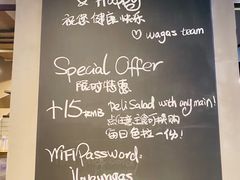 & Happy
祝您健康快乐
♡ wagas team
Special Offer
限时特惠
+15 RMB Deli Salad with any main!
点任意主食可换购
每日色拉一份!
WiFi Password:
ilovewagas